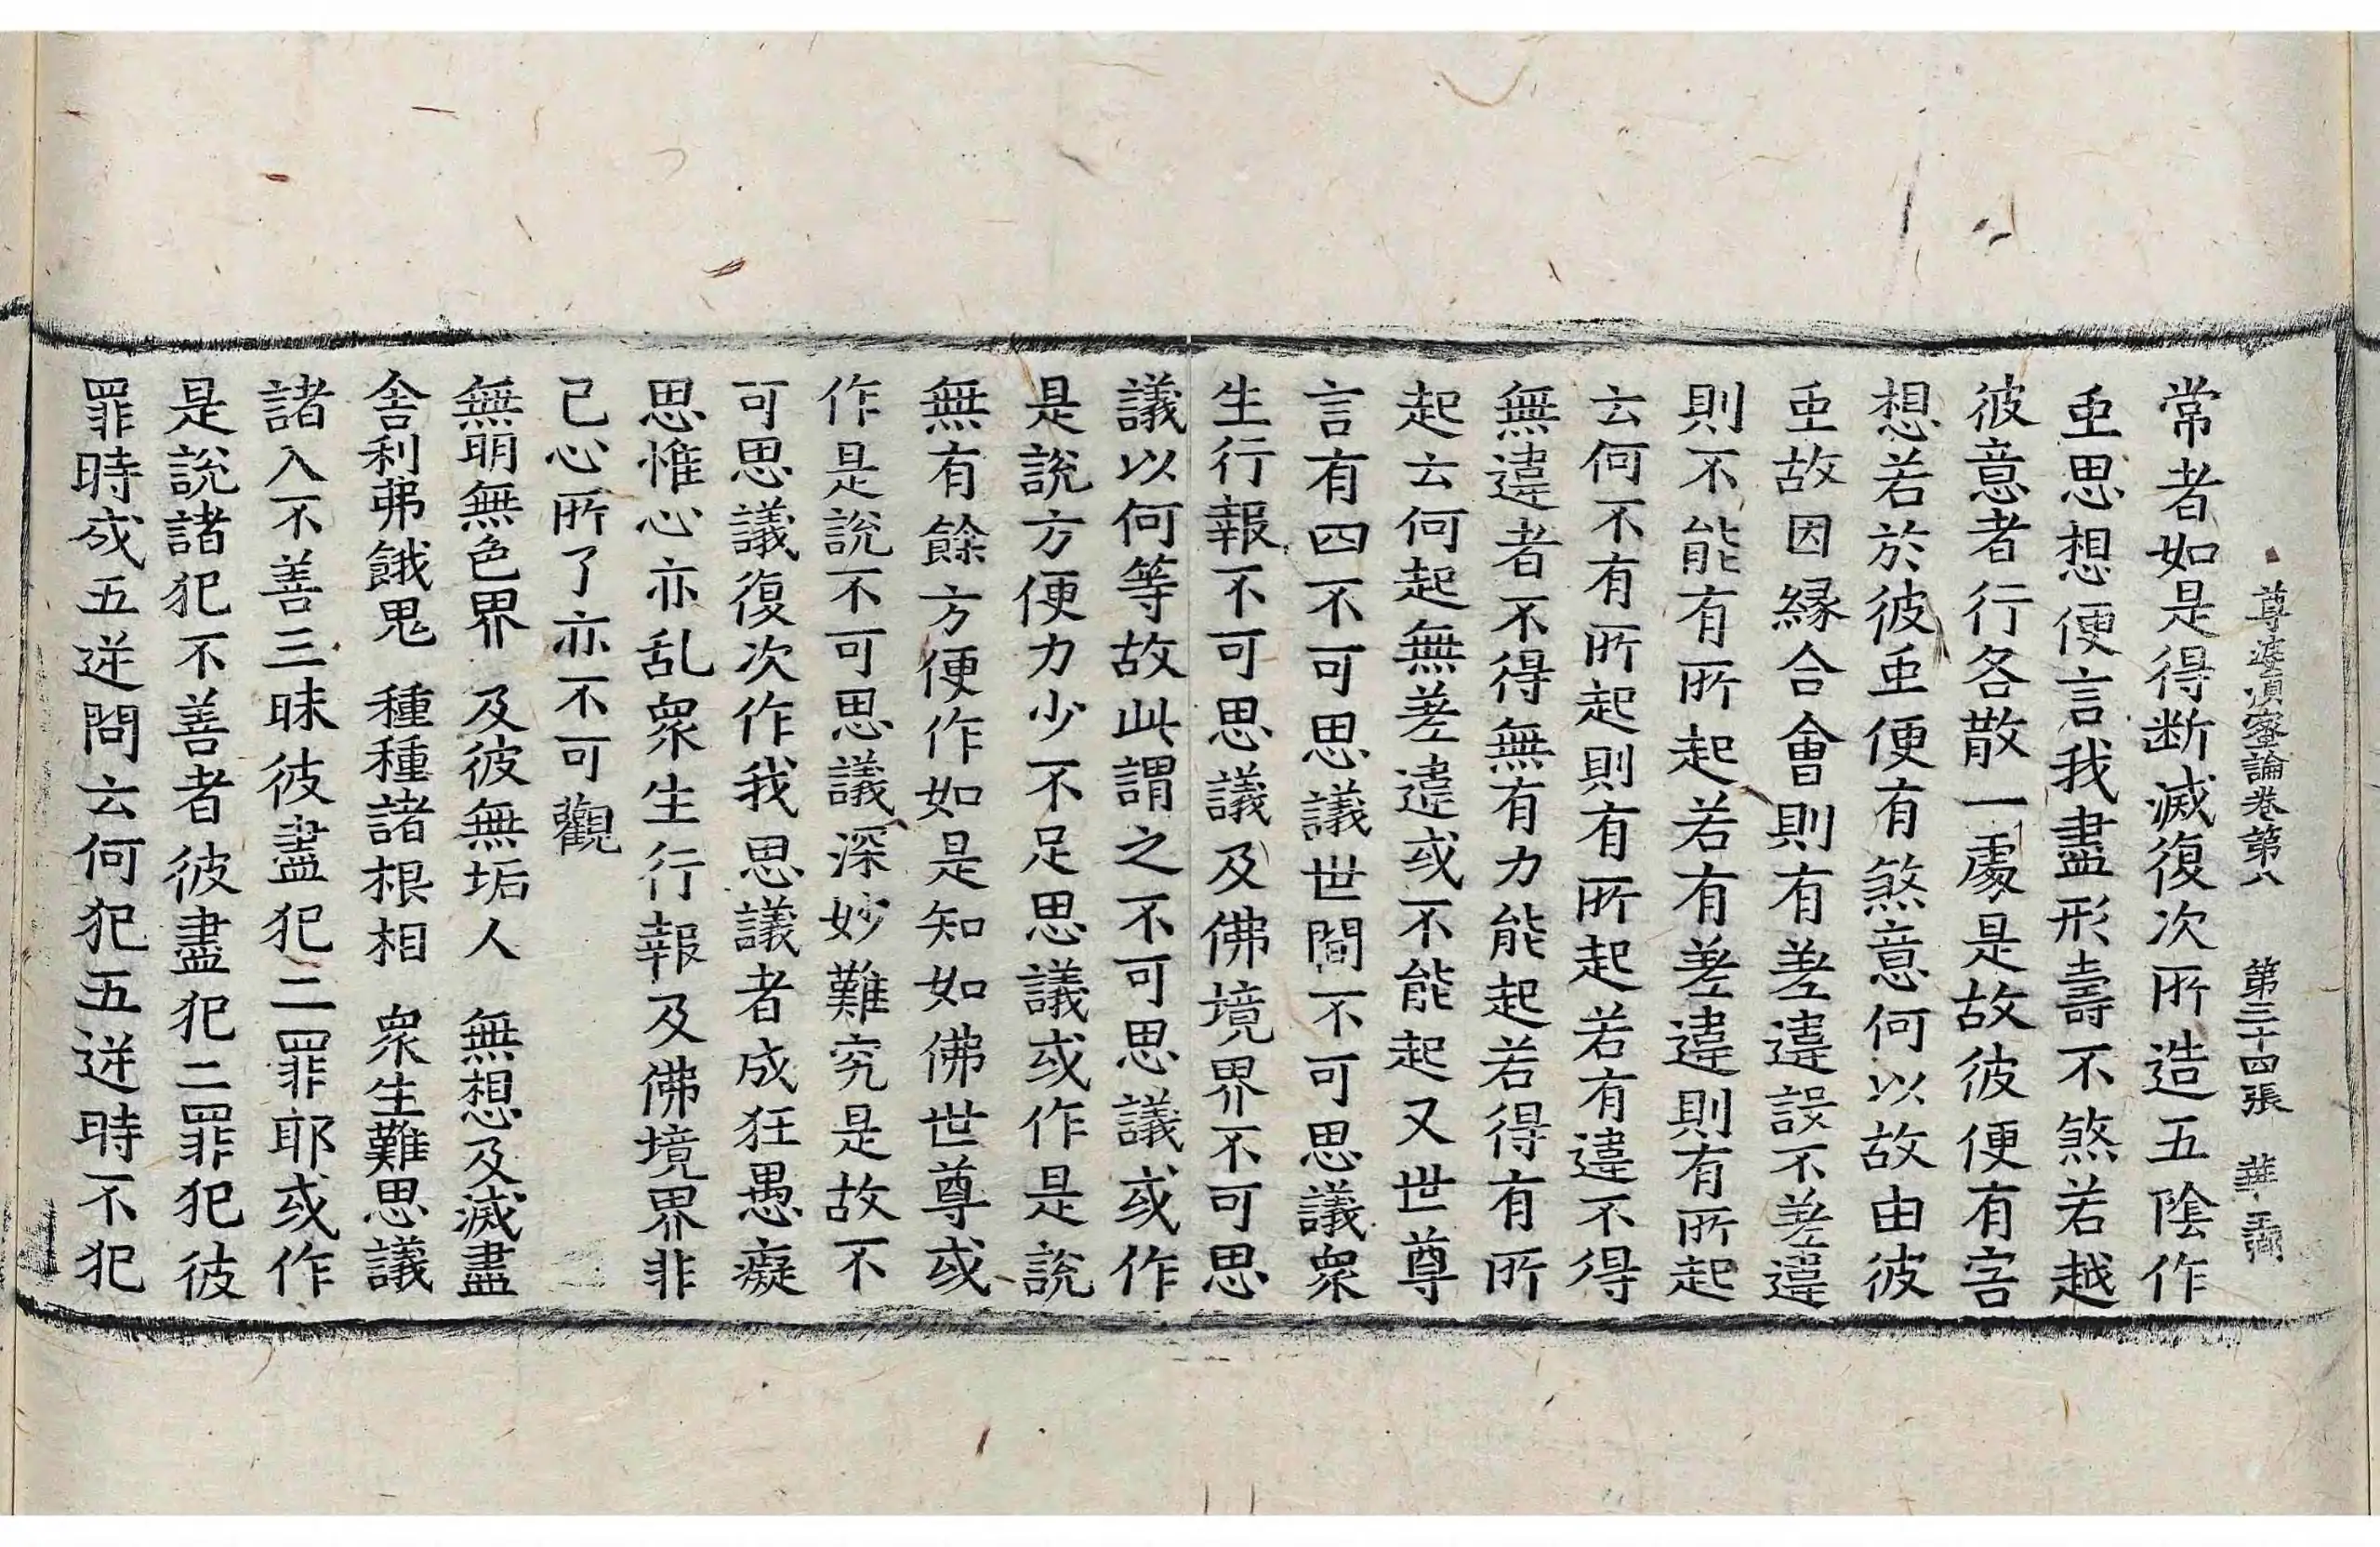 尊婆須蜜論卷第八 第三十四張 華
常者如是得断滅復次所造五陰作
𠄷思想便言我盡形壽不煞若越
彼意者行各散一處是故彼便有害
想若於彼𠄷便有煞意何以故由彼
𠄷故因縁合會則有差違誤不差違
則不能有所起若有差違則有所起
云何不有所起則有所起若有違不得
無違者不得無有力能起若得有所
起云何起無差違或不能起又世尊
言有四不可思議世間不可思議衆
生行報不可思議及佛境界不可思
議以何等故此謂之不可思議或作
是說方便力少不足思議或作是說
無有餘方便作如是知如佛世尊或
作是說不可思議深妙難究是故不
可思議復次作我思議者成狂愚癡
思惟心亦乱衆生行報及佛境界非
己心所了亦不可觀
無明無色界 及彼無垢人 無想及滅盡
舍利弗餓鬼 種種諸根相 衆生難思議
諸入不善三昧彼盡犯二罪耶或作
是說諸犯不善者彼盡犯二罪犯彼
罪時成五逆問云何犯五逆時不犯